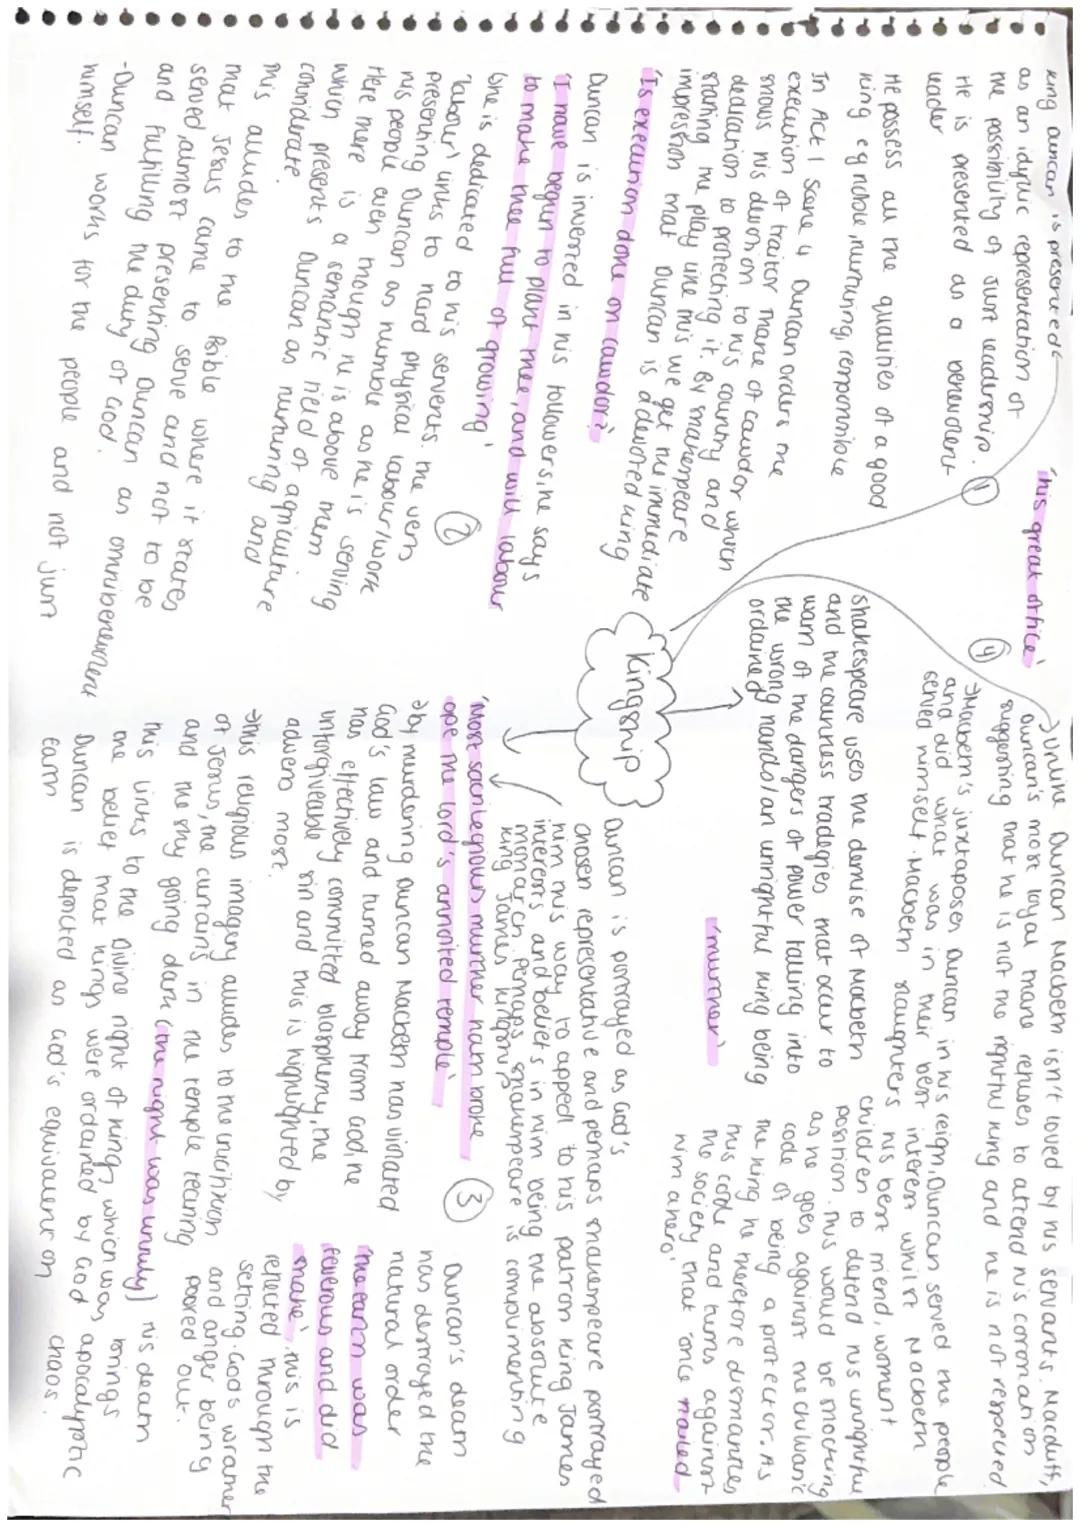 king duncan is presented
as an idyllic representation of
the possibility of just leadership.
He is presented as a benevolent
leader
He possess all the qualities of a good
king eg noble, nurturing, responsible
In Act 1 Scene 4 Duncan orders the
execution of traitor Thane of Cawdor which
shows his devotion to his country and
dedication to protecting it. By shakespeare
starting the play like this we get the immediate
impression that Duncan is a devoted king
'Is execution done on cawdor?'
Duncan is invested in his followers, he says
'I have begun to plant thee, and will labour
to make thee full of growing'
She is dedicated to his servents. the verb
'labour' links to hard physical labour/work
presenting Duncan as humble as he is serving
his people even though he is above them
Here there is a semantic field of agriculture
which presents Duncan as nurturing and
considerate.
This alludes to the Bible where it states
that Jesus came to serve and not to be
served, almost presenting Duncan as omnibenevolent
and fulfilling the duty of God.
-Duncan works for the people and not just
himself.
1
2
'his great office'
4
Kingship
→Unlike Duncan Macbeth isn't loved by his servants. Macduff,
Duncan's most loyal thane refuses to attend his coronation
suggesting that he is not the rightful king and he is not respected
→Macbeth's juxtaposes Duncan in his reign, Duncan served the people
and did what was in their best interest whilst Macbeth
served himself. Macbeth slaughters his best friend, woment
children to defend his unrightful
position. This would be shocking
as he goes against the chilvaric
code of being a protector. As
the king he therefore dismantles
this code and turns against
the society that 'once hailed
him thero'
Shakespeare uses the demise of Macbeth
and the countless tradegies that occur to
warn of the dangers of power falling into
the wrong hands/an unrightful king being
ordained
'murther'
Duncan is portrayed as God's
chosen representative and perhaps shakespeare portrayed
him this way to appeal to his patron King James
interests and beliefs in him being the absolute
monarch, perhaps shakespeare is complimenting
king James kingship
'Most sacrilegious murther hath broke
ope the lord's annoited temple'
3
→by murdering Duncan Macbeth has violated
God's law and turned away from God, he
has effectively committed blasphemy, the
unforgiveable sin and this is highlighted by
adverb most.
→this religious imagery alludes to the crucifixion
of Jesus, the curtains in the temple tearing
and the sky going dark ('the night was unruly')
this links to the Divine right of kings which was
the belief that kings were ordained by God
Duncan is depicted as God's equivalent on
earth
Duncan's death
has destroyed the
natural order
'the earth was
feverous and did
shake', this is
reflected through the
setting. God's wrather
and anger being
poored out.
his death
brings
apocalyptic
chaos.